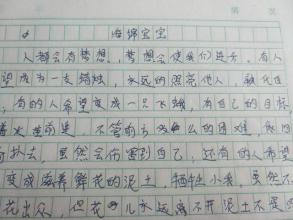 海绵宝宝
人都会有梦想，梦想会使我们进步，有人
望成为一支蜡烛，永远的照亮他人，
，有的人希望变成一只飞蛾，有自己的目标，
是，不管前方 多么的困难，
扑去，虽然会伤害到自己，还有的人希望
变成滋养鲜花的泥土，牺牲小我，虽然不
花出众，但花儿永远离不开泥土